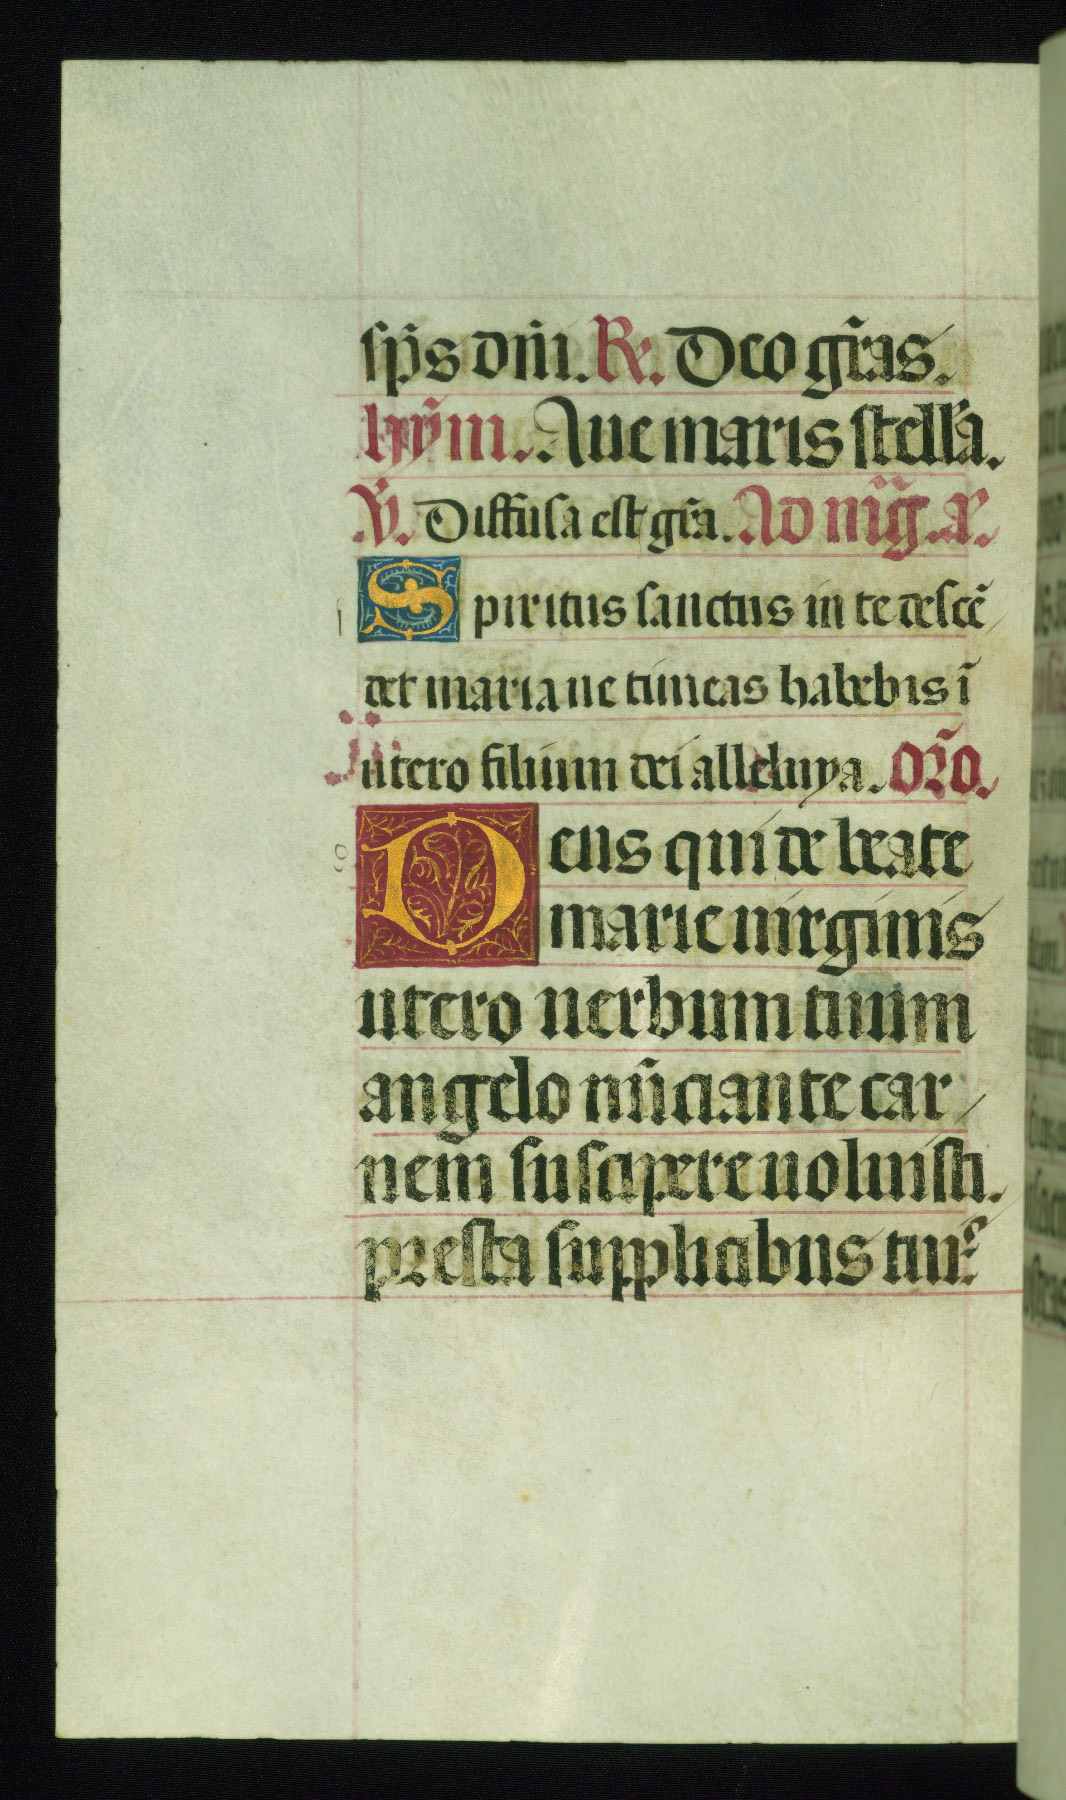 sp̄s dn̄i. R̷. Deo gr̄as.
hȳm. Aue maris stella.
V̄. Diffusa est gr̄a. Ad mg̃. a᷑.
Spiritus sanctus in te descē
det maria ne timeas habebis ī
utero filium dei alleluya. Or̄o.
Deus qui de beate
marie uirginis
utero uerbum tuum
angelo nūciante car
nem suscipere uoluisti.
presta supplicibus tuis